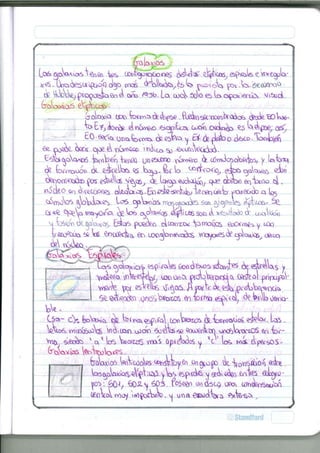 Galaxias
Las galaxias tienen tres configuraciones distintas: elípticas, espirales e irregula-
res. Una descripción algo más detallada, es la provista por la secuencia
de Hubble, propuesta en el año 1936. La cual solo es la apariencia visual.
Galaxias elípticas:
Galaxia con forma de elipse. Pueden ser nombradas desde E0 has-
ta E7, donde el número significa cuán ovalada es la elipse, así,
E0 sería una forma de esfera y E7 de plato o disco. También
se puede decir que el número indica su
Estas galaxias también tienen un escaso número de cúmulos abiertos, y la tasa
de formación de estrellas es baja. Por lo contrario, estas galaxias están
dominadas por estrellas viejas, de larga evolución, que orbitan en torno al
núcleo en direcciones aleatorias. En este sentido, tienen cierto parecido a los
cúmulos globulares. Las galaxias más grandes son gigantes elípticas. Se
cree que la mayoría de las galaxias elípticas son el resultado de
y fusión de galaxias. Estas pueden alcanzar tamaños enormes y con
frecuencia se las encuentra en conglomerados mayores de galaxias, cerca
del núcleo.
Galaxias Espirales:
Las galaxias espirales son discos rotantes de estrellas y
materia interestelar, con una protuberancia central principal-
mente por estrellas viejas. A partir de esta protuberancia
se extienden unos brazos en forma espiral, de brillo varia-
ble.
(Sa-c): Galaxia de forma espiral, con brazos de formación estelar. Las
letras minúsculas indican cuán sueltos se encuentran los brazos en for-
ma, siendo "a" los brazos más apretados y "c" los más dispersos.
Galaxias lenticulares:
Galaxias lenticulares constituyen un grupo de transición entre
las galaxias elípticas y las espirales y se dividen en tres subgru-
pos: S01, S02 y S03. Poseen un disco, una condensación
central muy importante y una envoltura extensa.
Standford